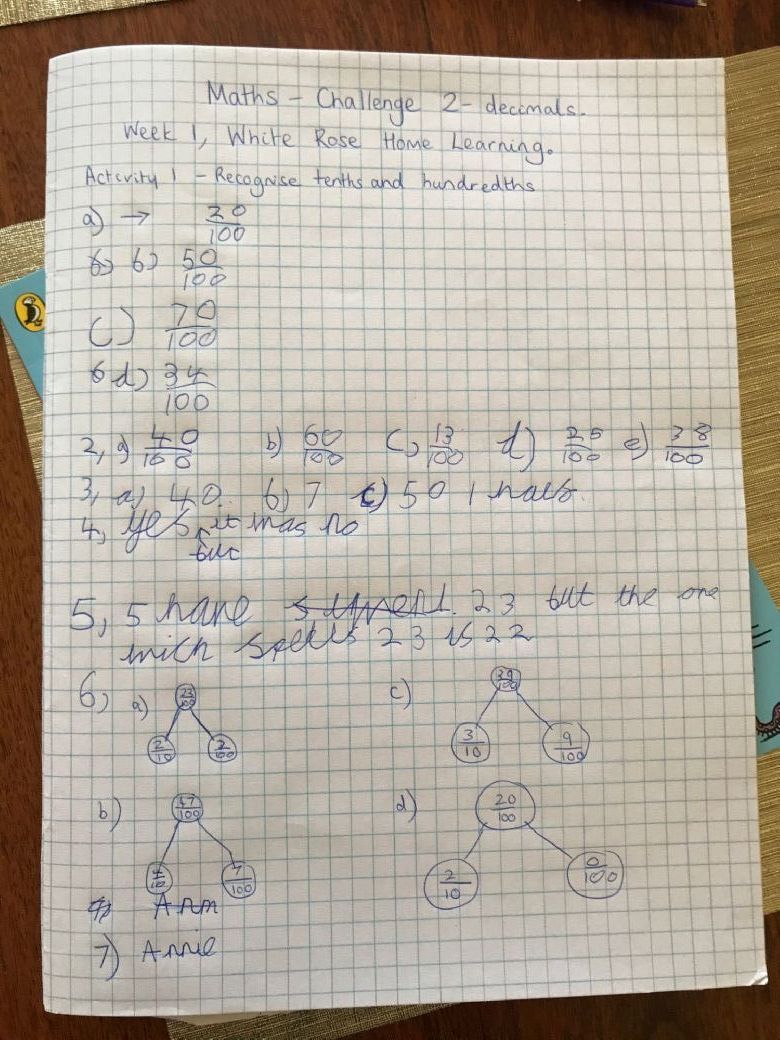 Maths - Challenge 2 - decimals.
Week 1, White Rose Home Learning.
Activity 1 - Recognise tenths and hundredths
a) → 20/100
b) b) 50/100
c) 70/100
d) 34/100
2, a) 40/100 b) 60/100 c, 13/100 d) 25/100 e) 38/100
3, a) 40. b) 7 c) 50 1 half.
4, yes, it has no
but
5, 5 have 23 but the one
wich spells 23 is 22
6, a) 23/100 c) 39/100
2/10 3/10 9/100
b) 47/100 d) 20/100
4/10 7/100 2/10 0/100
Ann
7) Annie